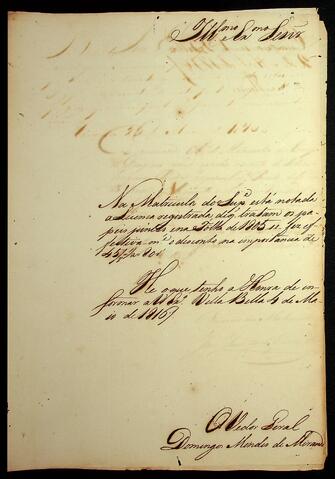 Illmo e Exmo Senr
Na Matricula do Supe está notada
a Licença registrada, de q. tratam os pa
peis juntos e na Folha de 1805 se fez ef
fectivamte o desconto na importancia de
He o que tenho a Honra de in
formar a V Exa Villa Bella 4 de Ma
io de 1816
O Vedor Geral
Domingos Mendes de Moraes